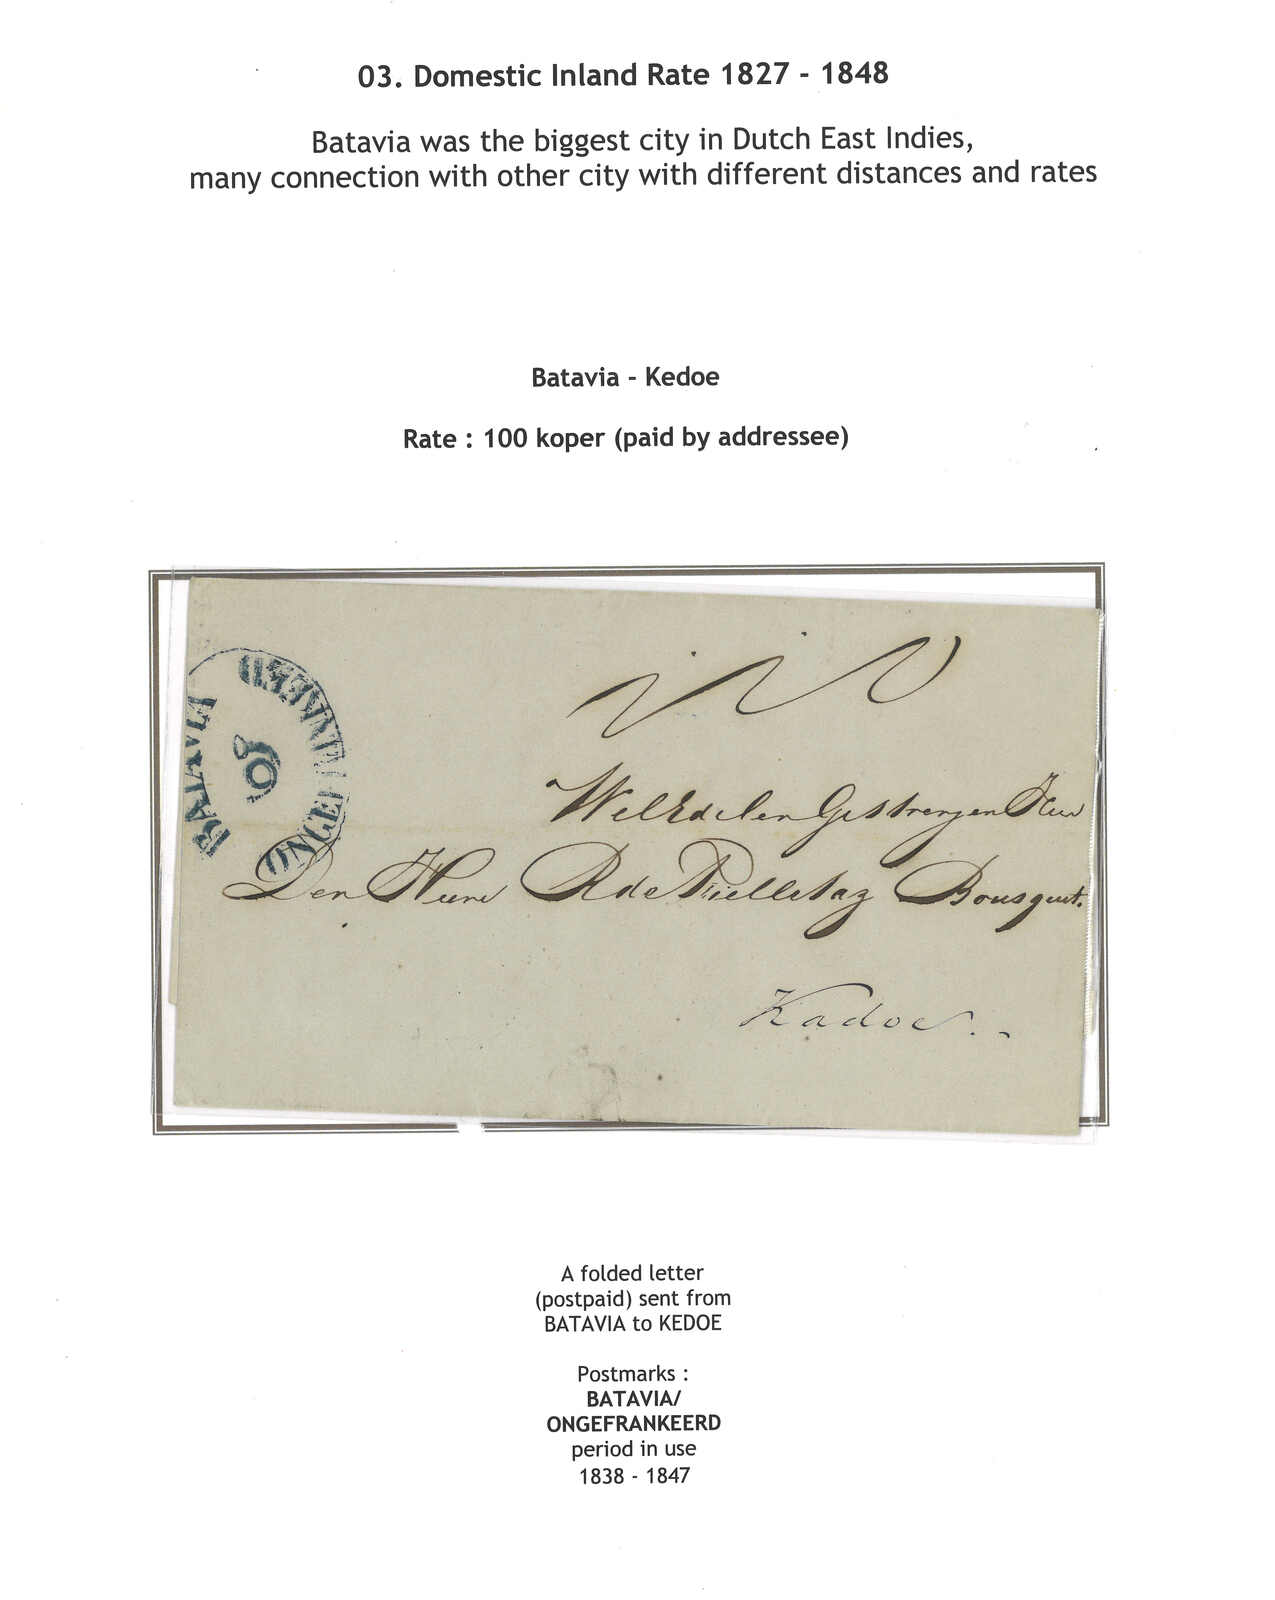 03. Domestic Inland Rate 1827 - 1848
Batavia was the biggest city in Dutch East Indies,
many connection with other city with different distances and rates
Batavia - Kedoe
Rate : 100 koper (paid by addressee)
BATAVIA
ONGEFRANKEERD
WelEdelen Gestrengen Heer
Den Heere R de Bousquet.
Kadoe.
A folded letter
(postpaid) sent from
BATAVIA to KEDOE
Postmarks :
BATAVIA/
ONGEFRANKEERD
period in use
1838 - 1847